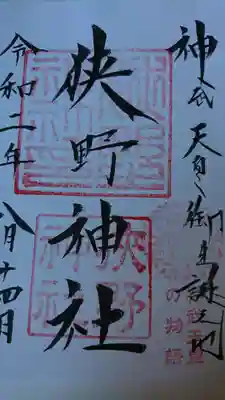 神武天皇御生誕之地
狭野神社
令和二年 八月十四日
狭野
神社
の物語